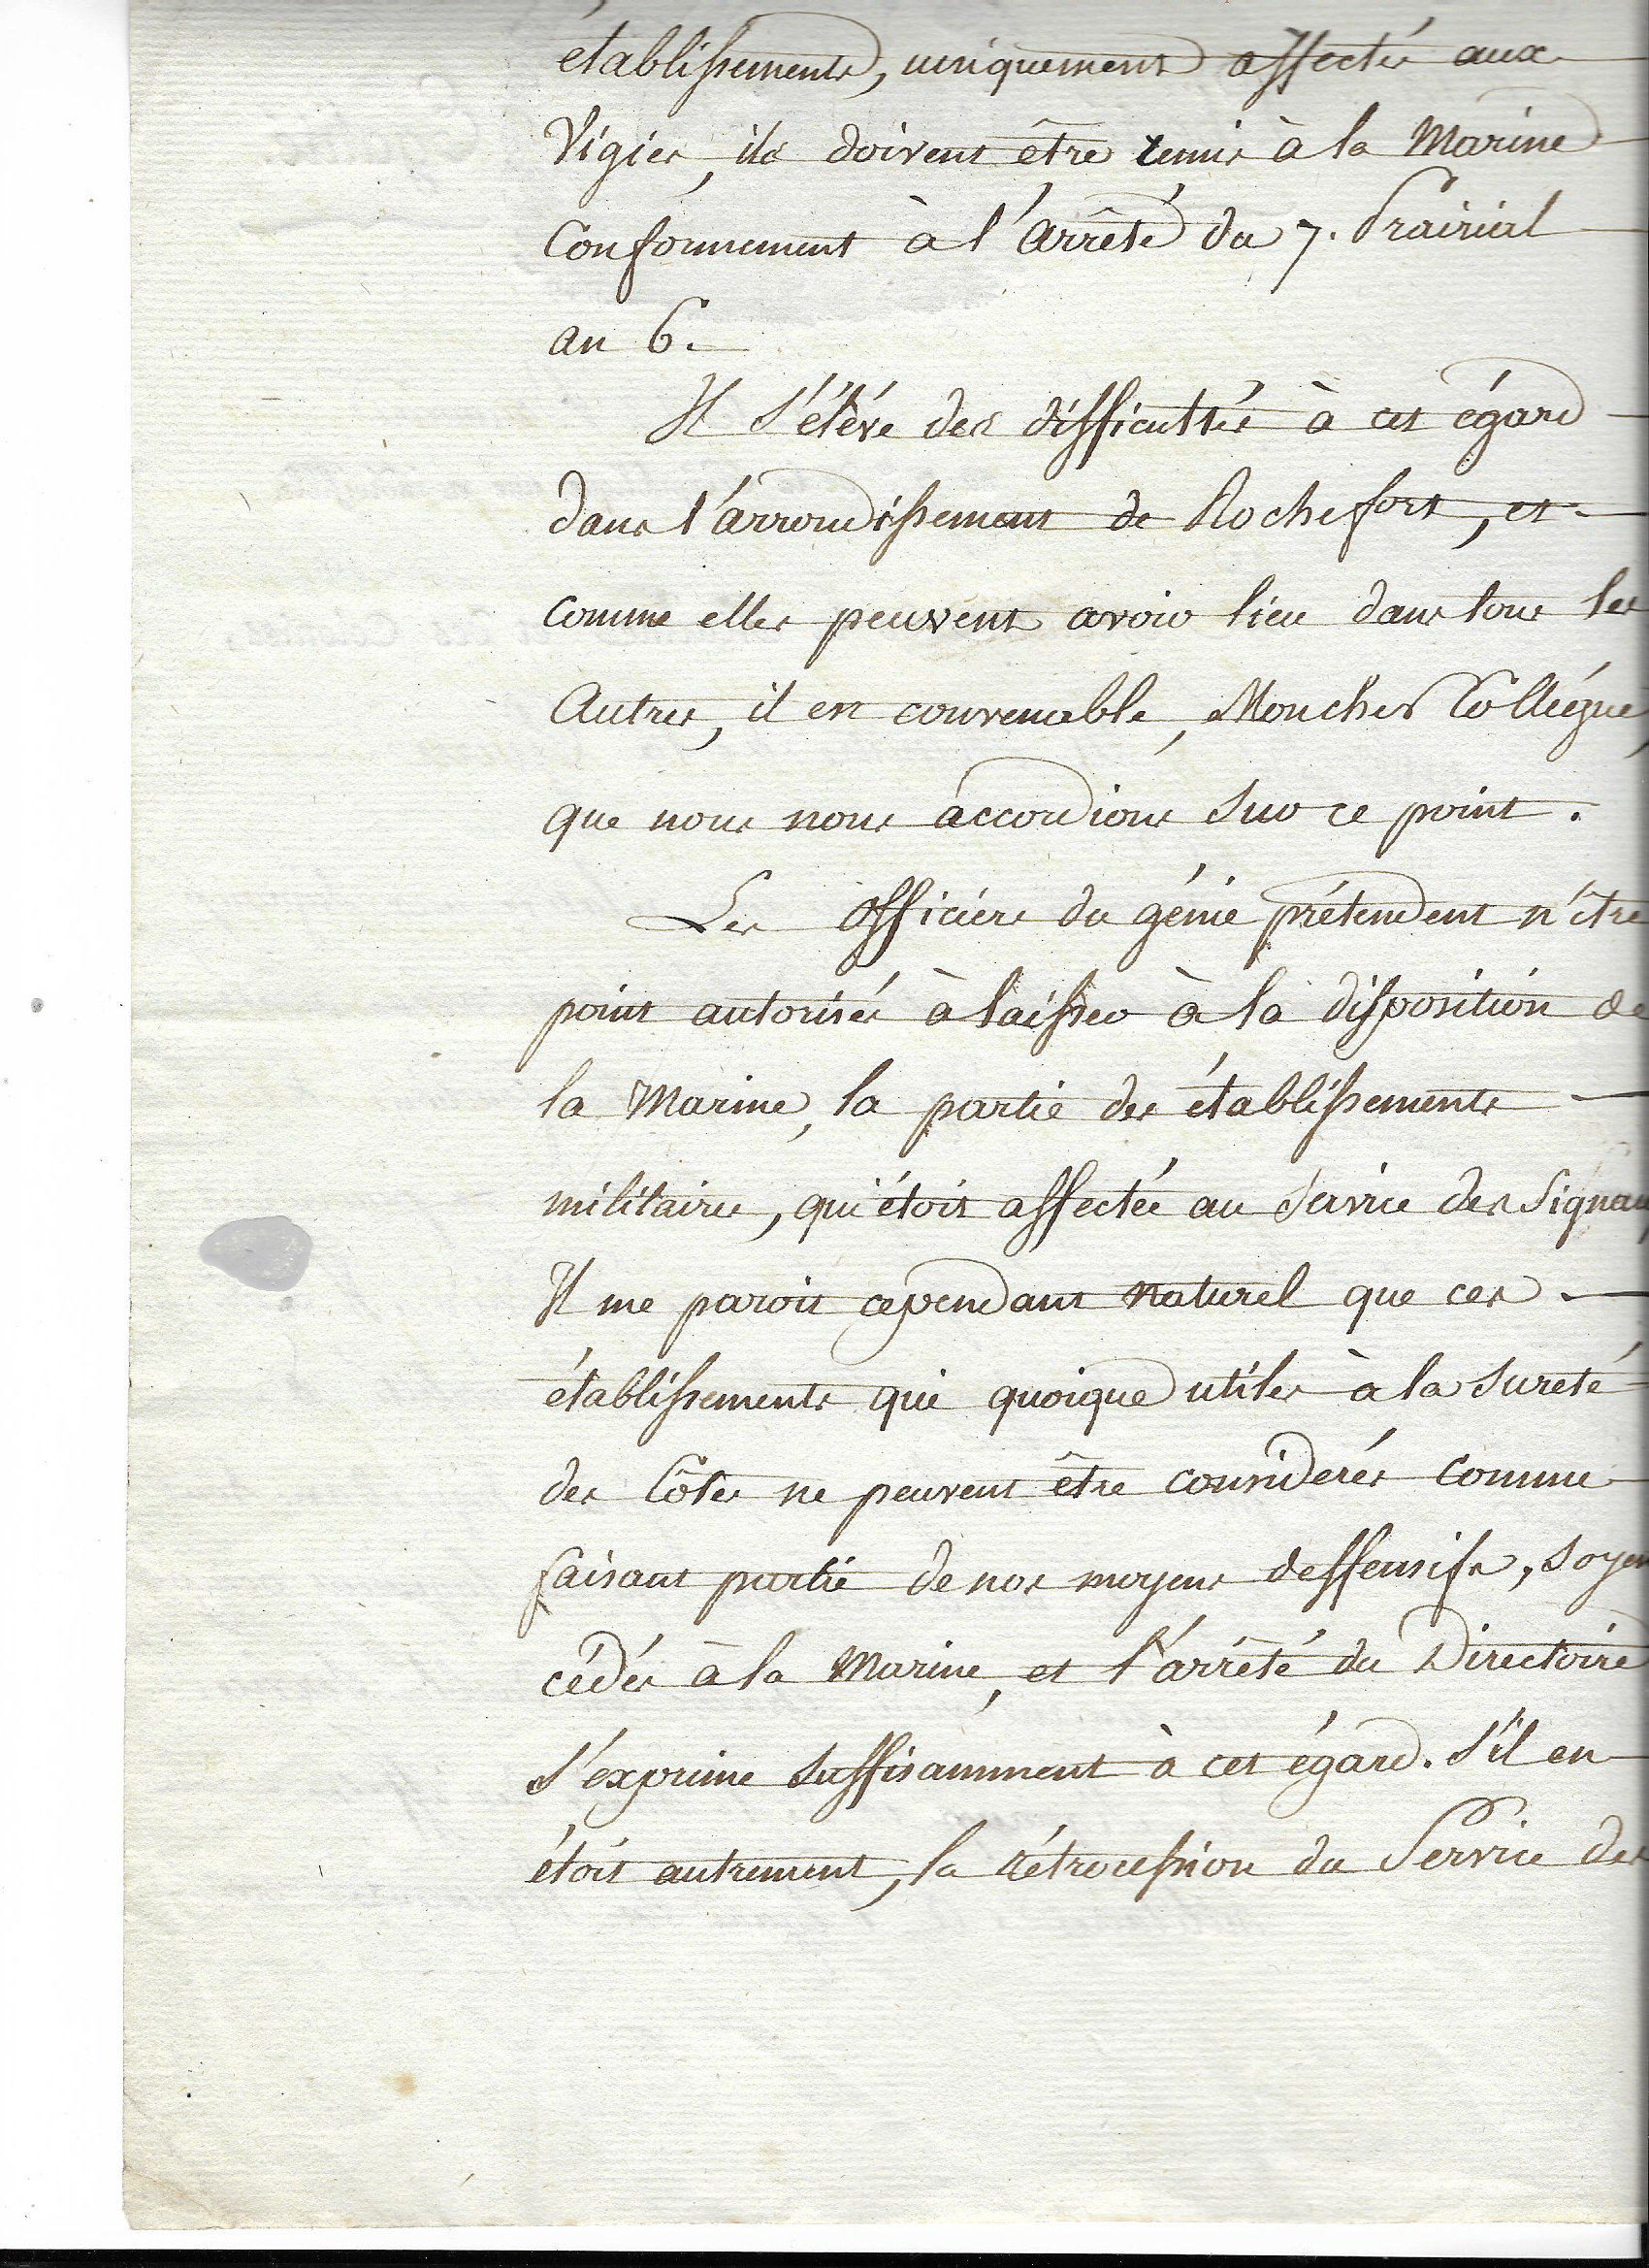 établissements, uniquement affectés aux
Vigies, ils doivent être remis à la Marine
Conformement à l'arrêté du 7. Prairial
an 6.
Il s'élève des difficultés à cet égard
dans l'arrondissement de Rochefort, et
comme elles peuvent avoir lieu dans tous les
Autres, il est convenable, Mon cher Collégue,
que nous nous accordions sur ce point.
Les Officiers du génie prétendent n'être
point autorisés à laisser à la disposition de
la Marine, la partie des établissements
militaires, qui étoit affectée au service des Signaux
Il me paroit cependant naturel que ces
établissements qui quoique utiles à la sureté
des Côtes ne peuvent être considérés comme
faisant partie de nos moyens deffensifs, soyen
cédés à la Marine, et l'arrêté du Directoire
s'exprime suffisamment à cet égard. S'il en
étoit autrement, la rétrocession du Service des